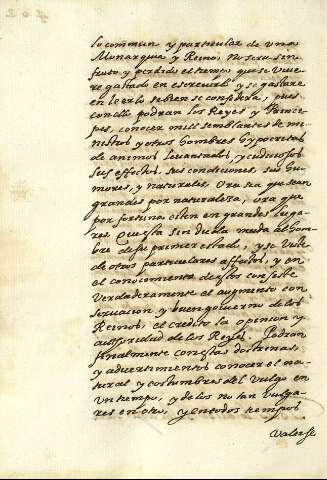 lo commun y particular de vna
Monarquia y Reino, No sera sin
fruto y perdido el tiempo que se viere
gastado en escreuirlo y se gastare
en leerlo si bien se considera, pues
con ello podran los Reyes y Princi-
pes, conocer mill semblantes de mi-
nistros y otros hombres hypocritas
de animos leuantados, y cudiciosos
sus effectos, sus condiciones, sus hu-
mores, y naturales. Ora sea que sean
grandes por naturaleza, ora que
por fortuna esten en grandes luga-
res que esta sin duda muda al hom-
bre de su primer estado, y se viste
de otros particulares affectos, y en
el conocimiento destos consiste
verdaderamente el augmento con-
seruacion y buen gouierno de los
Reinos, el credito la opinion y
authoridad de los Reyes. Podran
finalmente con estas doctrinas,
y aduertimientos conocer el na-
tural y costumbres del vulgo en
vn tiempo, y de los no tan vulga-
res en otro, y en todos tiempos
valerse